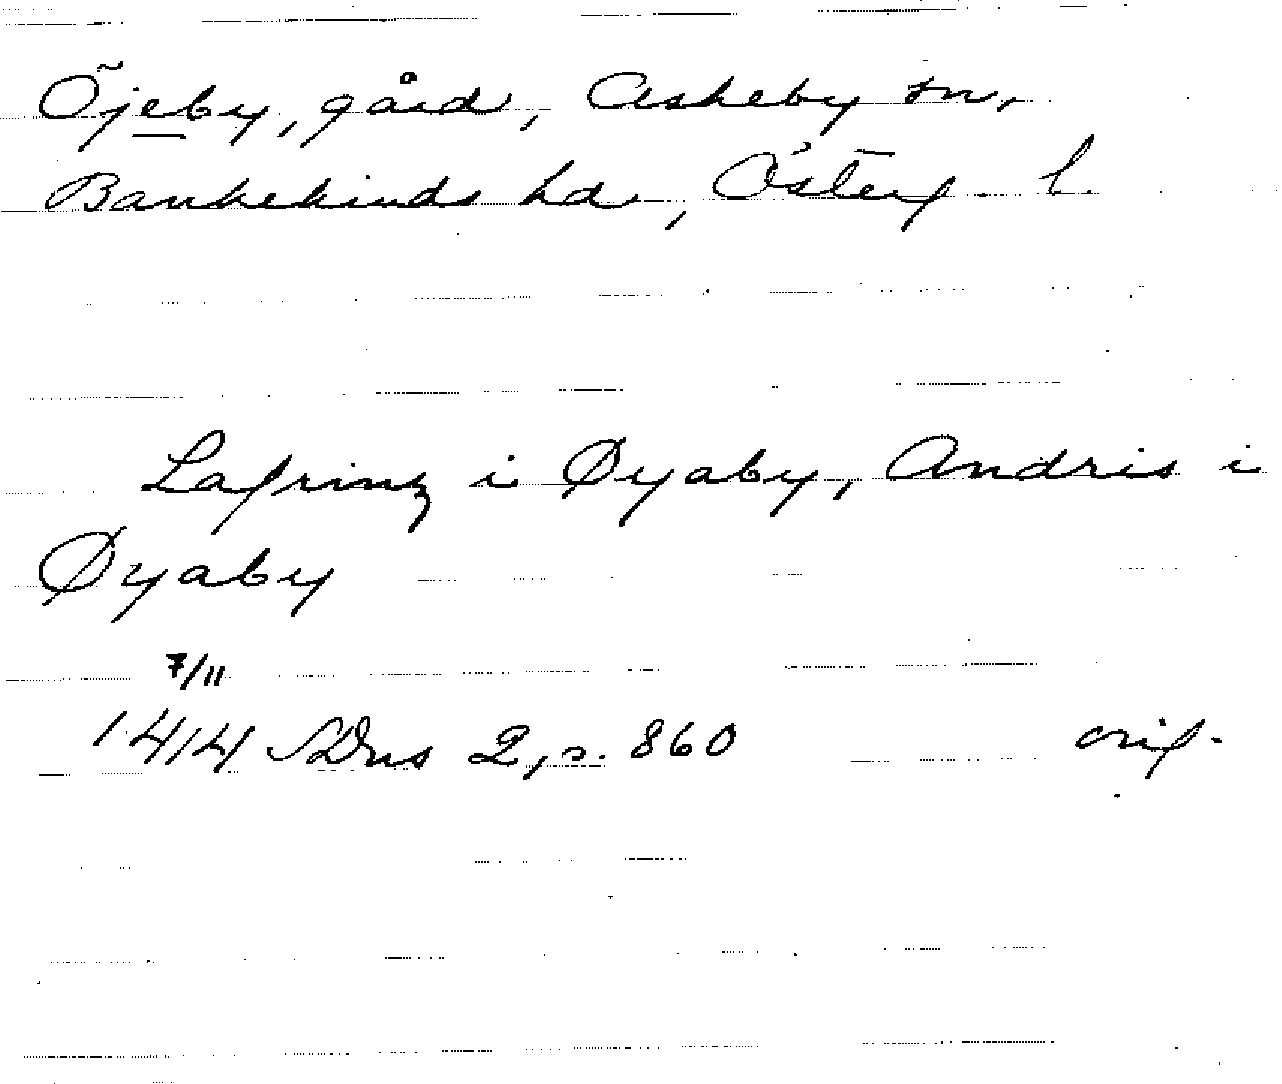 Öjeby, gård, Askeby sn,
Bankekinds hd, Österg. l.
Lafrinz i Øyaby, Andris i
Øyaby
7/11
1414 SDns 2, s. 860 orig.